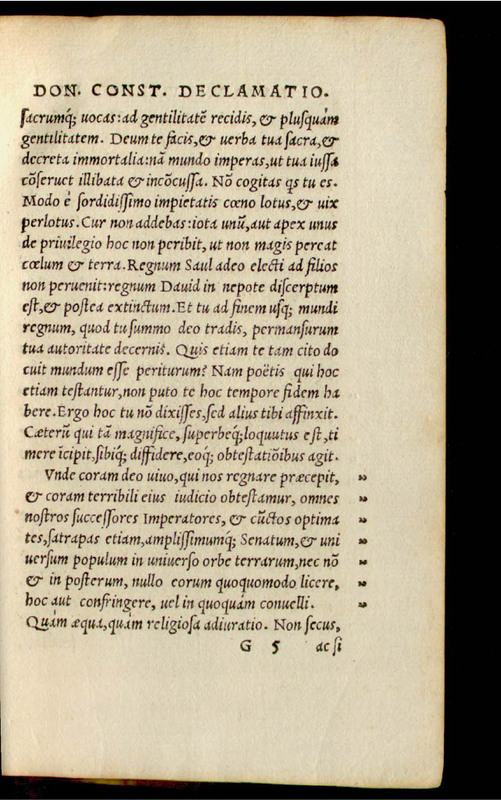 DON. CONST. DECLAMATIO.
sacrumq́; uocas: ad gentilitatẽ recidis, & plusquàm
gentilitatem. Deum te facis, & uerba tua sacra, &
decreta immortalia: nã mundo imperas, ut tua iussa
cõseruet illibata & incõcussa. Nõ cogitas qs tu es.
Modo è sordidissimo impietatis cœno lotus, & uix
perlotus. Cur non addebas: iota unũ, aut apex unus
de priuilegio hoc non peribit, ut non magis pereat
cœlum & terra. Regnum Saul à deo electi ad filios
non peruenit: regnum Dauid in nepote discerptum
est, & postea extinctum. Et tu ad finem usq; mundi
regnum, quod tu summo deo tradis, permansurum
tua autoritate decernis. Quis etiam te tam cito do
cuit mundum esse periturum? Nam poëtis qui hoc
etiam testantur, non puto te hoc tempore fidem ha
bere. Ergo hoc tu nõ dixisses, sed alius tibi affinxit.
Cæterũ qui tã magnifice, superbeq́; loquutus est, ti
mere ĩcipit, sibiq́; diffidere, eoq́; obtestatiõibus agit.
Vnde coram deo uiuo, qui nos regnare præcepit, »
& coram terribili eius iudicio obtestamur, omnes »
nostros successores Imperatores, & cũctos optima »
tes, satrapas etiam, amplissimumq́; Senatum, & uni »
uersum populum in uniuerso orbe terrarum, nec nõ »
& in posterum, nullo eorum quoquomodo licere, »
hoc aut confringere, uel in quoquam conuelli. »
Quàm æqua, quàm religiosa adiuratio. Non secus,
G 5 ac si